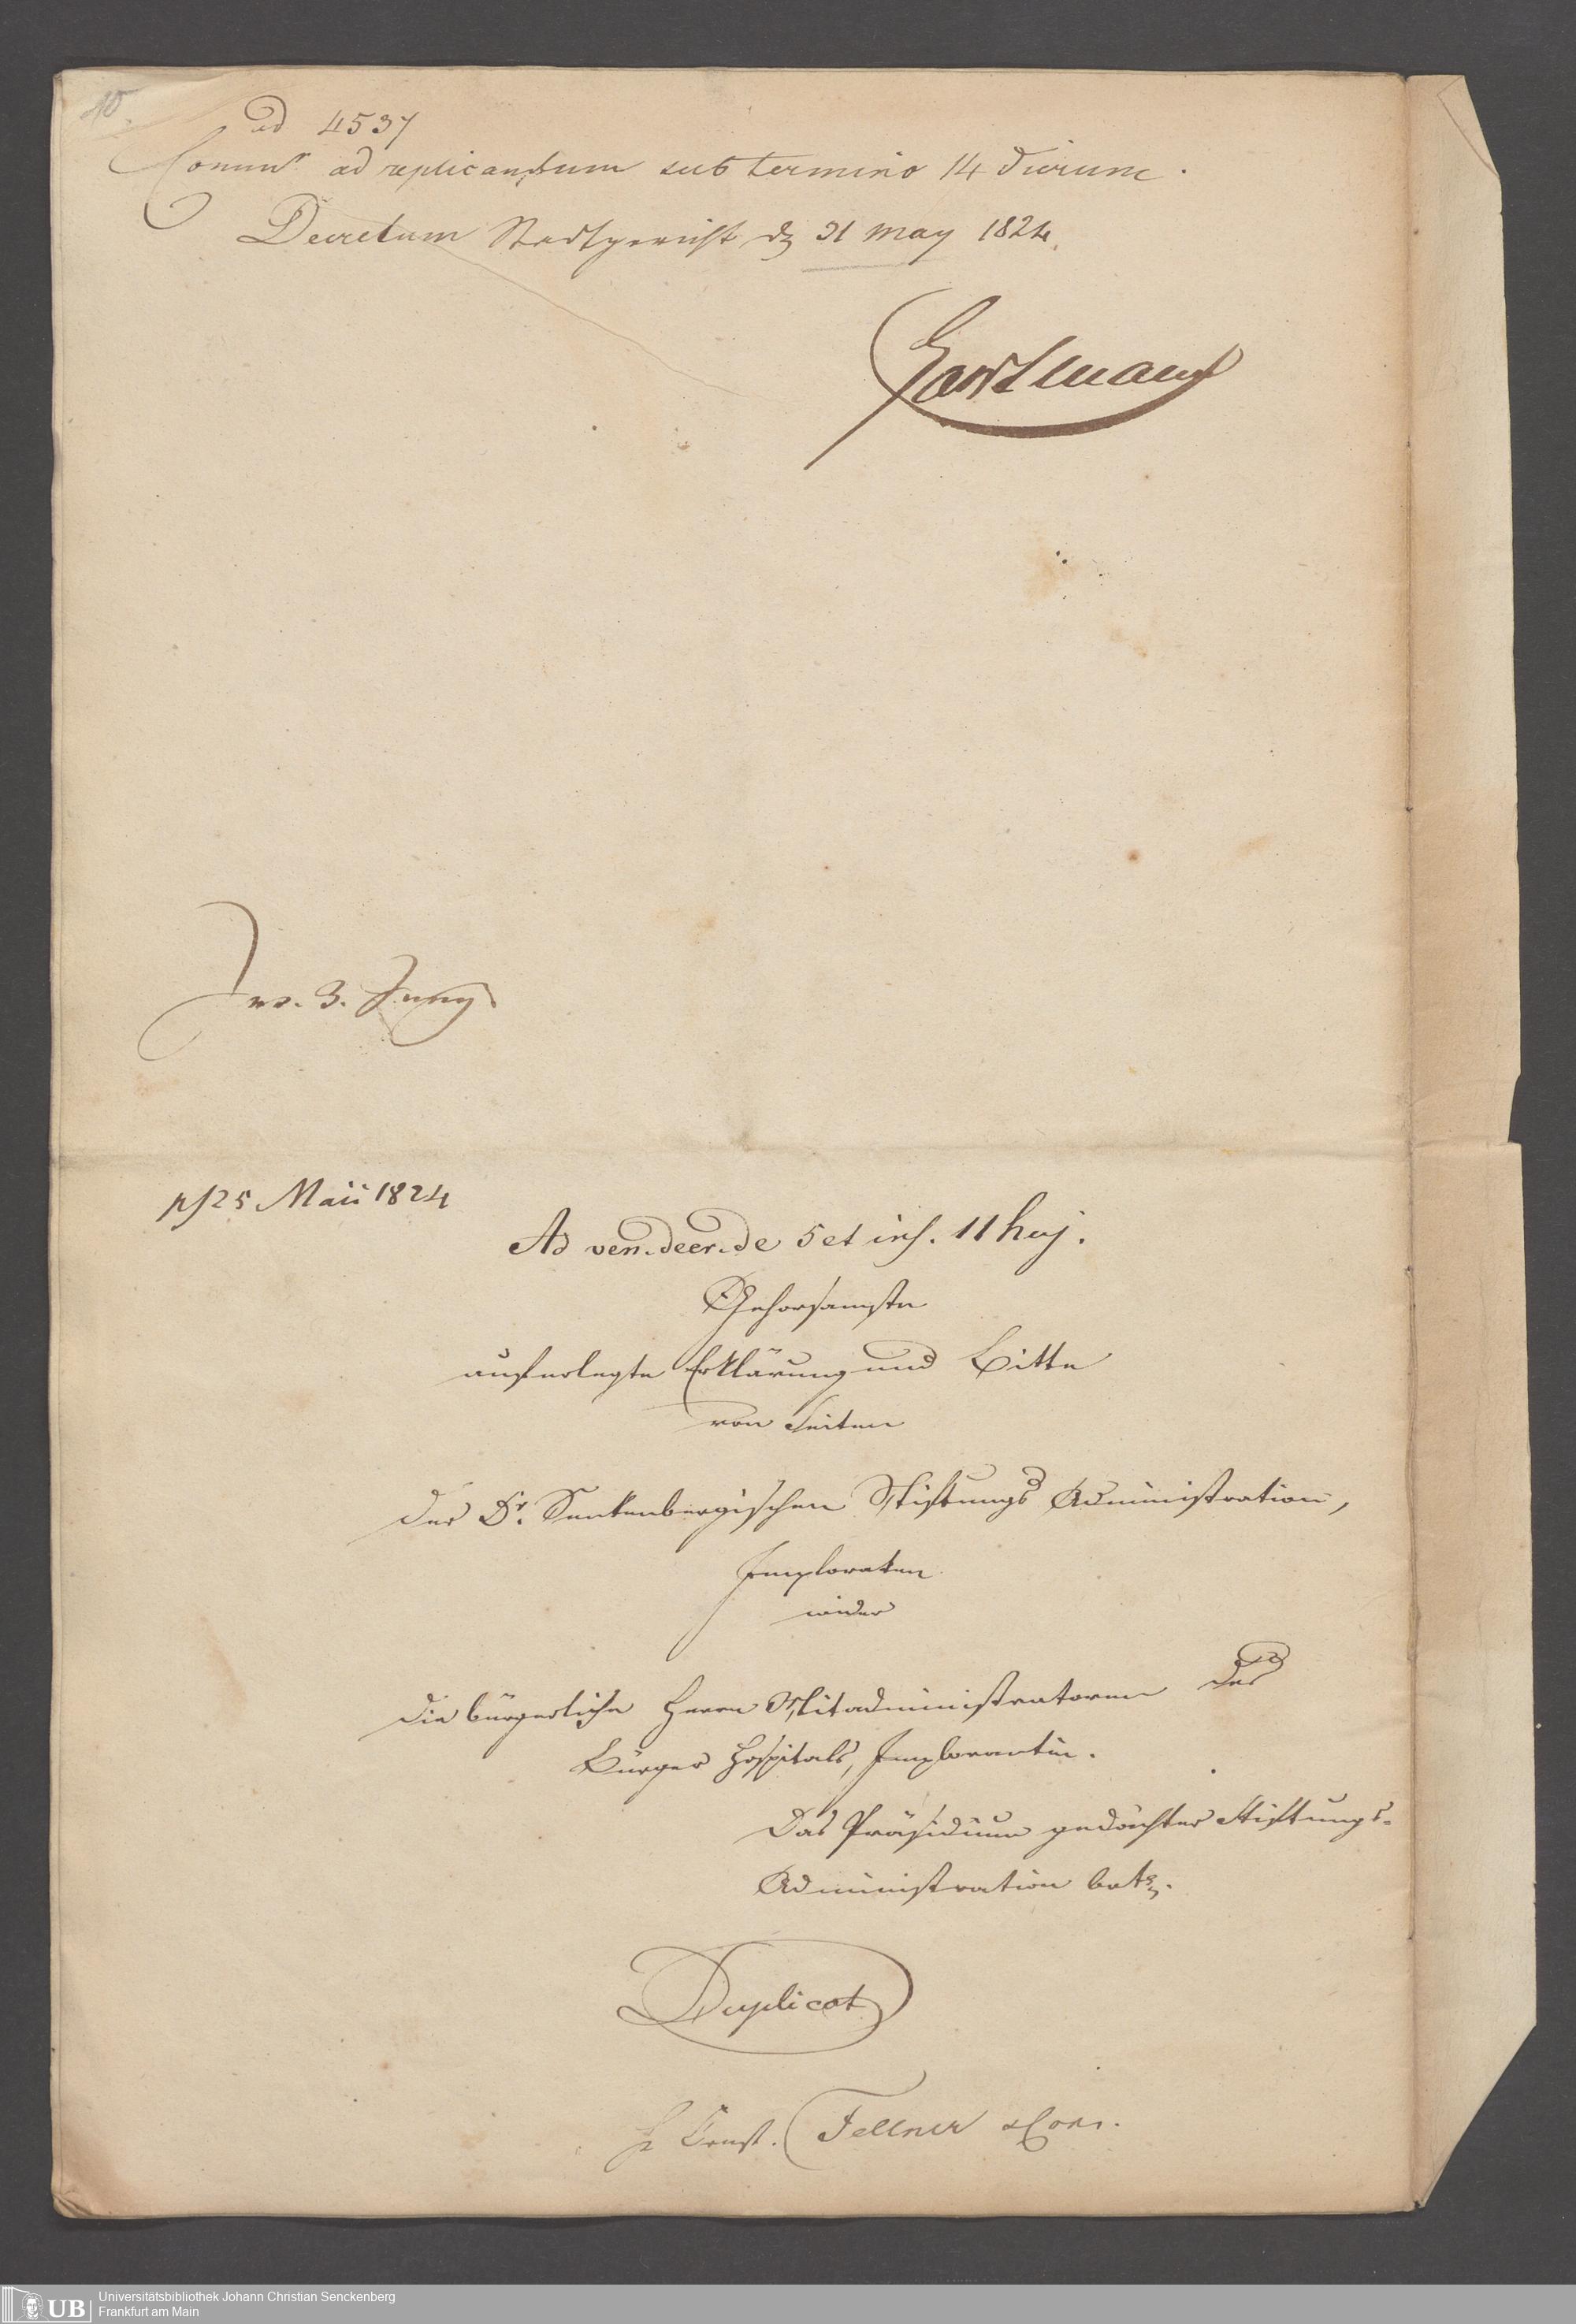 10.
ad 4537
Commr. ad replicandum sub termino 14 dierum.
Decretum Stadtgericht d 31 May 1824.
Hartmann
Ins. 3. Juny
ps 25 Maii 1824
Ad ven. decr. de 5 et ins. 11 huj.
Gehorsamste
auferlegte Erklärung und Bitte
von Seiten
der Dr. Senkenbergischen Stiftungs Administration,
Imploraten
wider
die bürgerliche Herrn Mitadministratoren des
Bürger Hospitals, Imploranten.
Das Präsidium gedachter Stiftungs-
Administration
Duplicat
Fellner & Cons.
Universitätsbibliothek Johann Christian Senckenberg
UB Frankfurt am Main